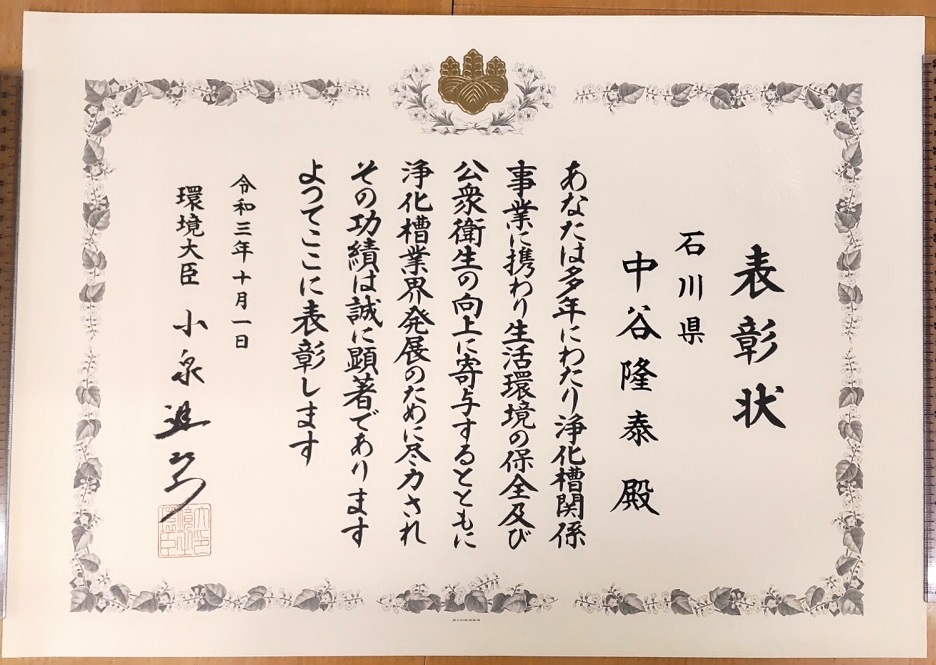 表彰状
石川県
中谷隆泰殿
あなたは多年にわたり浄化槽関係
事業に携わり生活環境の保全及び
公衆衛生の向上に寄与するとともに
浄化槽業界発展のために尽力され
その功績は誠に顕著であります
よつてここに表彰します
令和三年十月一日
環境大臣 小泉進次郎